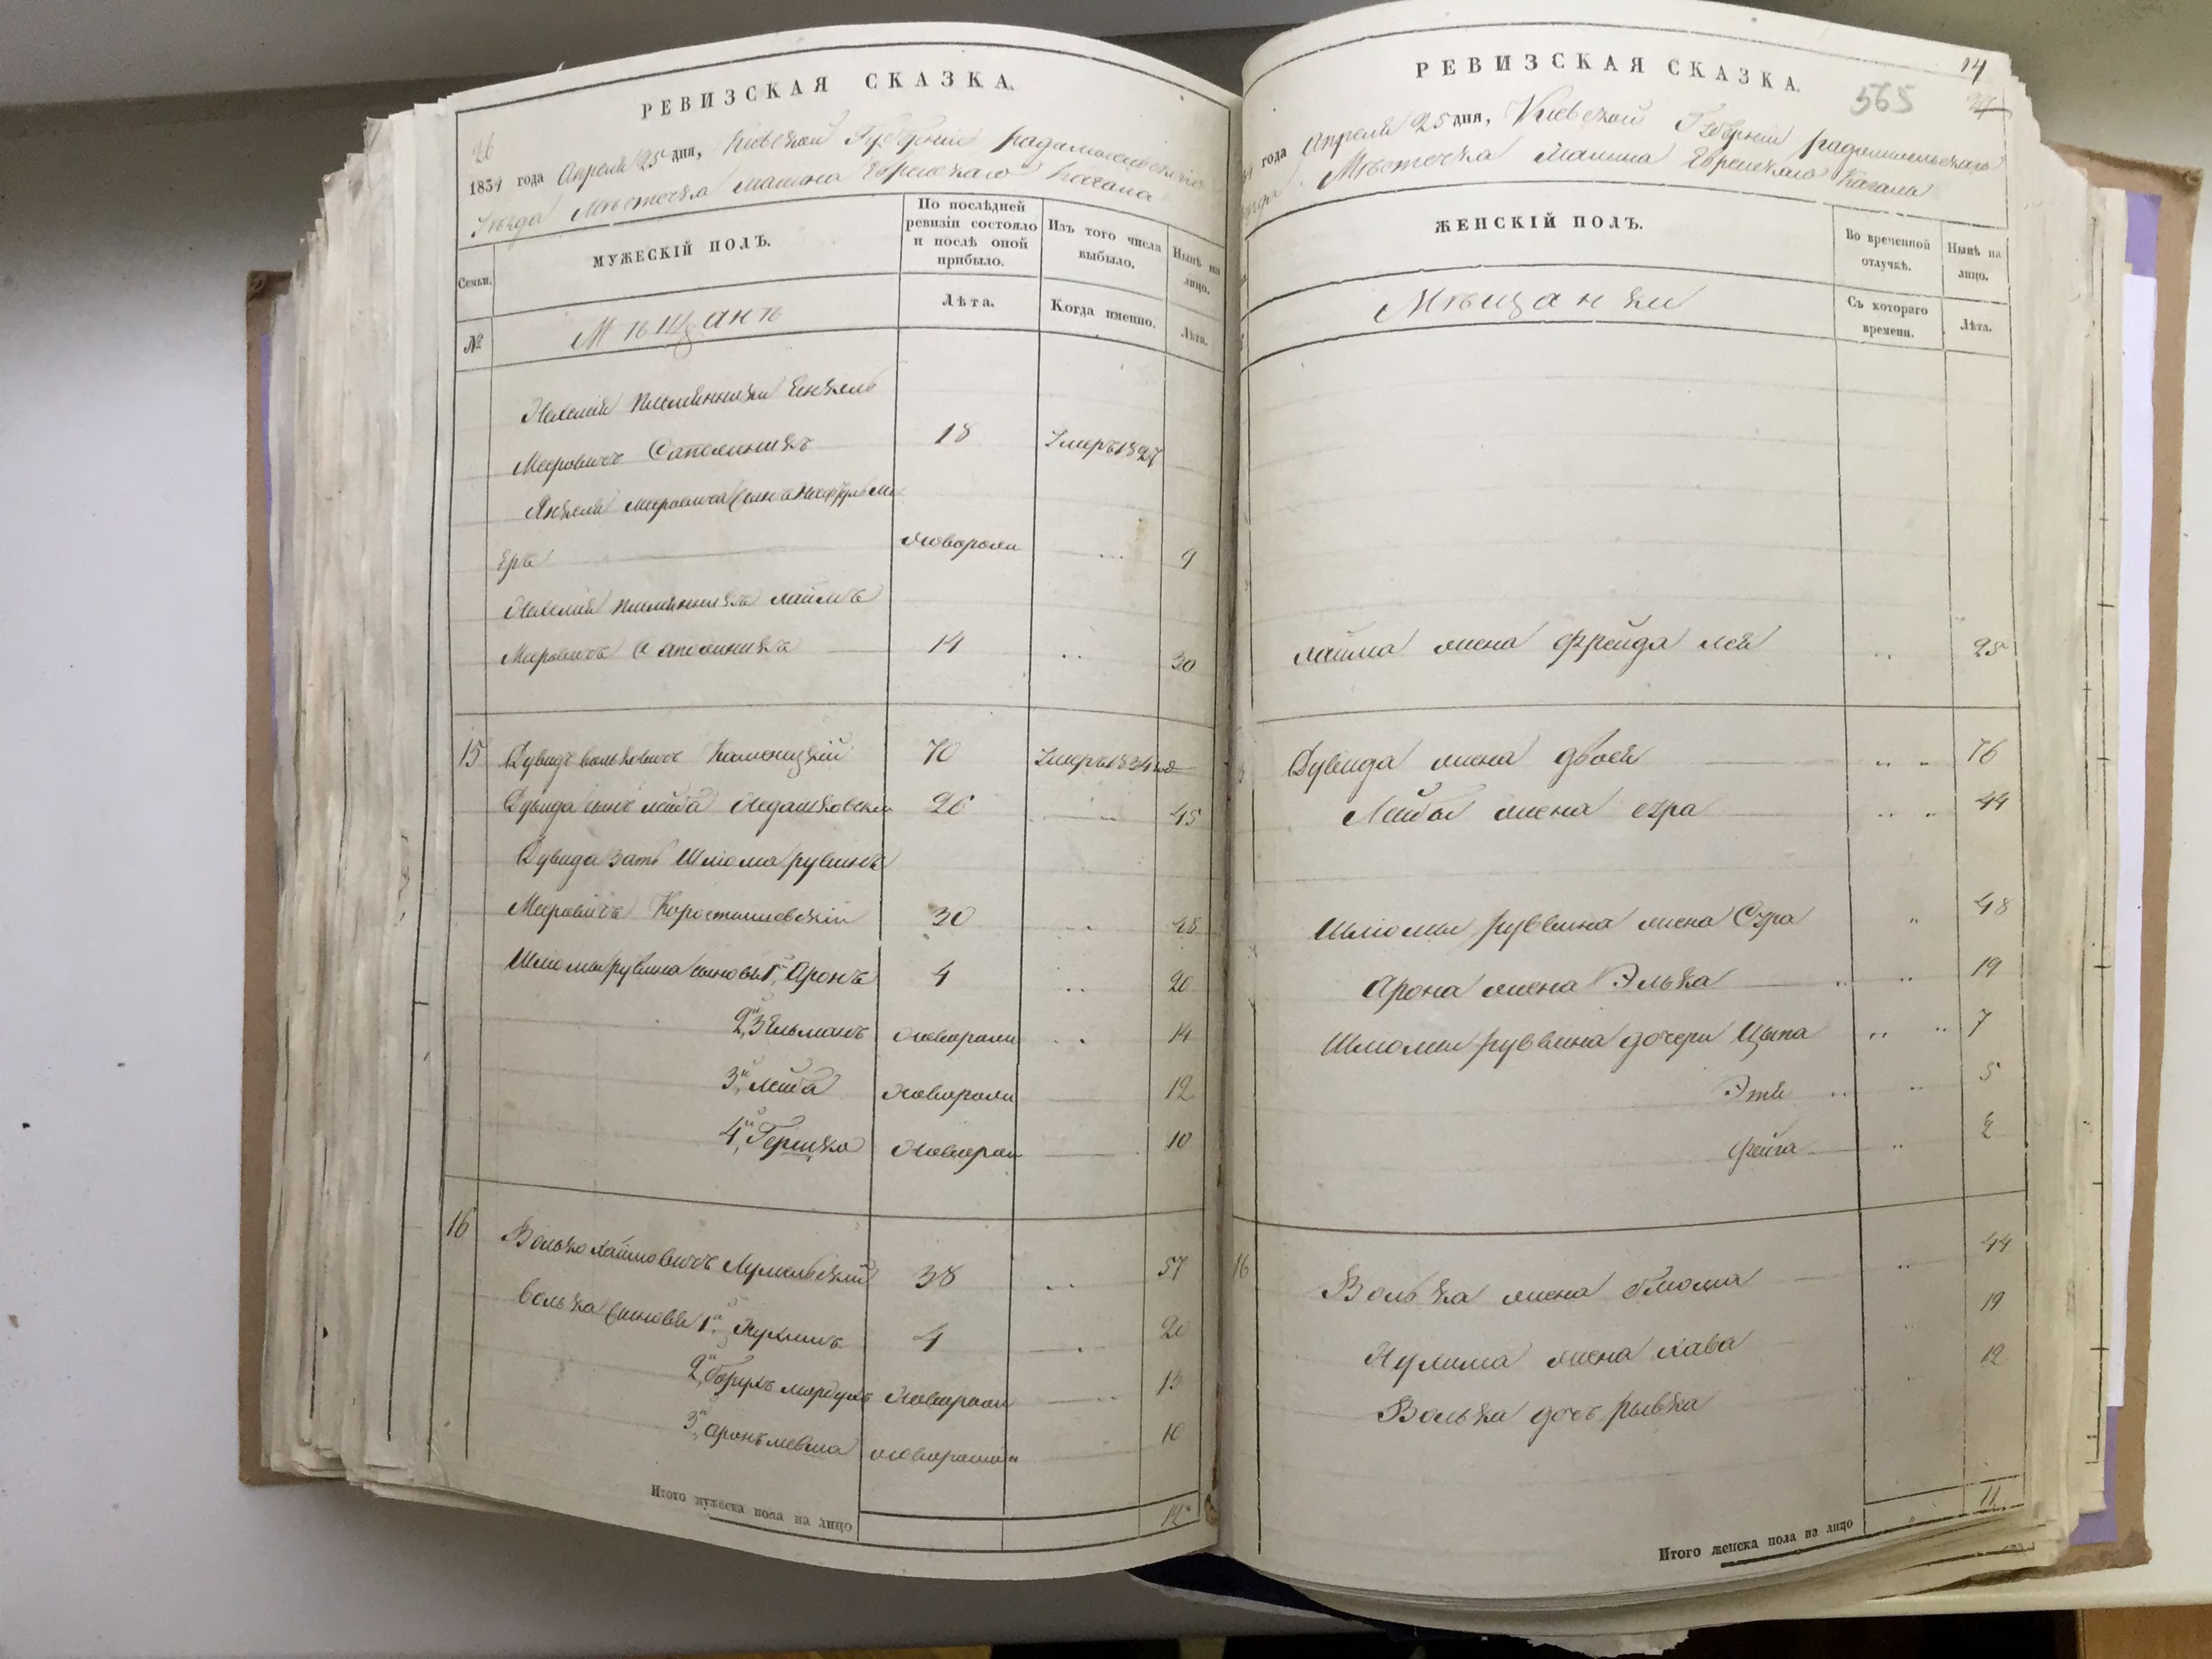 РЕВИЗСКАЯ СКАЗКА.
26
1834 года Апреля 25 дня, Киевской Губернии радомысльского
Уезда Местечка Малина Еврейского Кагала
МУЖЕСКІЙ ПОЛЪ.
По послѣдней ревизіи состояло и послѣ оной прибыло.
Изъ того числа выбыло.
Нынѣ на лицо.
Семьи.
Лѣта.
Когда именно.
Лѣта.
№
Мѣщанъ
племянники Янкель
Мееровичъ 18 Умеръ 1827
Янкеля Мееровича сынъ
еръ новорож 9
племянникъ хаимъ
Мееровичъ 14 30
15 Дувидъ Вольковичъ Каменецкій 70 Умеръ 1834 го
Дувида сынъ лейба 26 45
Дувида зять Шлиома рувинъ
Мееровичъ Коростышевскій 30 48
Шлиомы рувина сыновья 1й Аронъ 4 20
2й Зельманъ новорож 14
3й лейба новорож 12
4й Гершко новорож 10
16 Волько хаимовичъ 38 57
Волька сыновья 1й Нухимъ 4 20
2й Борухъ мордухъ новорож 13
3й аронъ новорож 10
Итого мужеска пола на лицо 12
РЕВИЗСКАЯ СКАЗКА.
14
565
года Апреля 25 дня, Киевской Губернии радомысльского
Местечка Малина Еврейского Кагала
ЖЕНСКІЙ ПОЛЪ.
Во временной отлучкѣ.
Нынѣ на лицо.
Съ котораго времени.
Лѣта.
Мѣщанки
хаима жена Фрейда лея 25
Дувида жена двоея 76
Лейбы жена сура 44
Шлиомы руввина жена Сура 48
Арона жена Элька 19
Шлиомы руввина дочери Цыпа 7
Этя 5
фейга 2
16 Волька жена блюма 44
Нухима жена хава 19
Волька дочь рывка 12
Итого женска пола на лицо 11